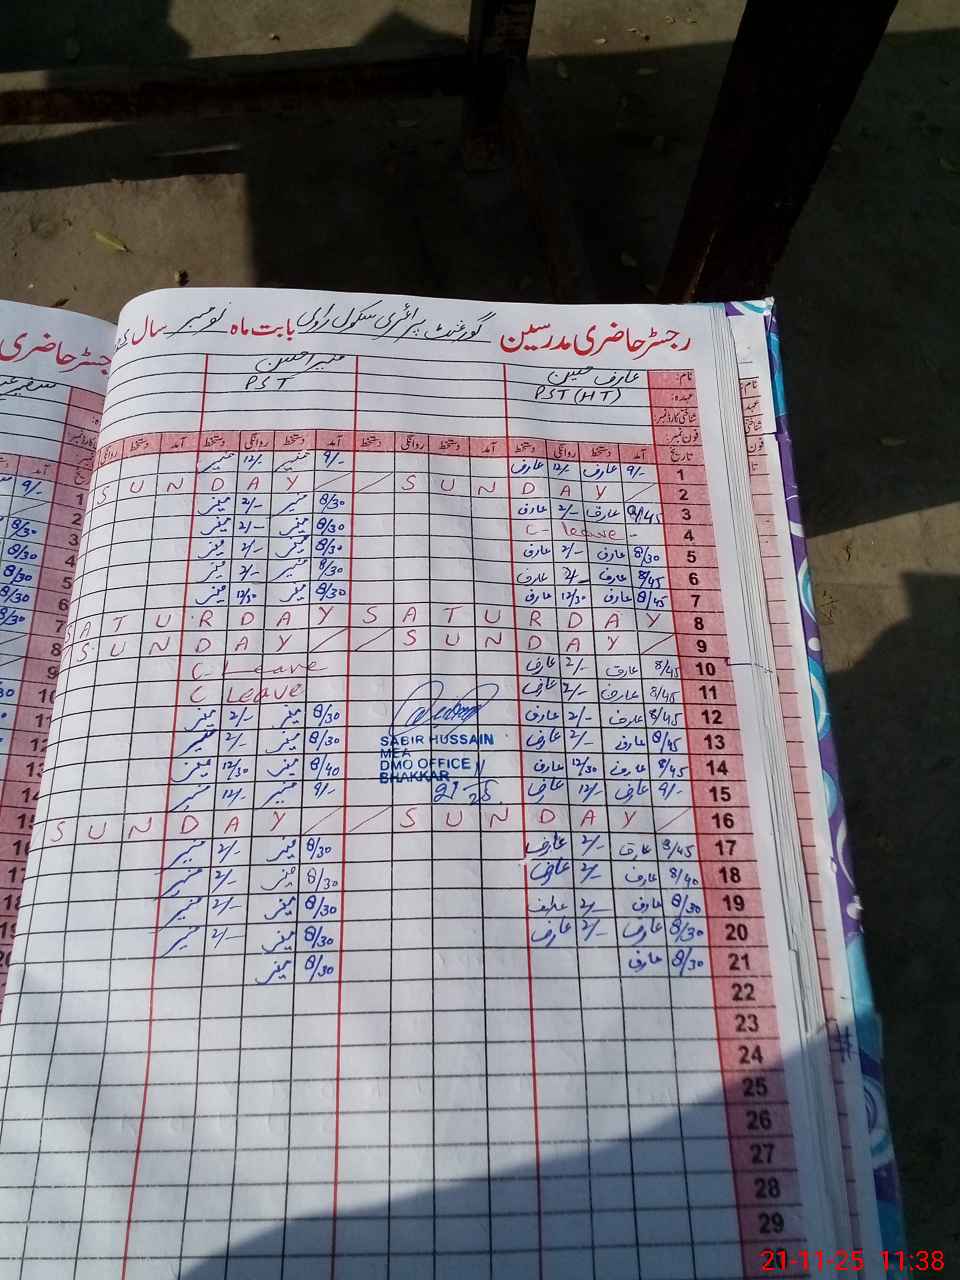 رجسٹر حاضری مدرسین گورنمنٹ پرائمری سکول بابت ماہ نومبر سال
نام: عارف حسین منیر
عہدہ: PST (HT) PST
شناختی کارڈ نمبر:
فون نمبر:
تاریخ آمد دستخط روانگی دستخط آمد دستخط روانگی دستخط آمد دستخط روانگی دستخط آمد دستخط روانگی
1 9/- عارف 12/- عارف 9/- منیر 12/- منیر
2 SUNDAY SUNDAY
3 8/45 عارف 2/- عارف 8/30 منیر 2/- منیر
4 C- leave - 8/30 منیر 2/- منیر
5 8/30 عارف 2/- عارف 8/30 منیر 2/- منیر
6 8/45 عارف 2/- عارف 8/30 منیر 2/- منیر
7 8/45 عارف 12/30 عارف 8/30 منیر 12/30 منیر
8 SATURDAY SATURDAY
9 SUNDAY SUNDAY
10 8/45 عارف 2/- عارف C- Leave
11 8/45 عارف 2/- عارف C Leave
12 8/45 عارف 2/- عارف 8/30 منیر 2/- منیر
13 8/45 عارف 2/- عارف 8/30 منیر 2/- منیر
14 8/45 عارف 12/30 عارف 8/40 منیر 12/30 منیر
15 9/- عارف 12/- عارف 9/- منیر 12/- منیر
16 SUNDAY SUNDAY
17 8/45 عارف 2/- عارف 8/30 منیر 2/- منیر
18 8/40 عارف 2/- عارف 8/30 منیر 2/- منیر
19 8/30 عارف 2/- عارف 8/30 منیر 2/- منیر
20 8/30 عارف 2/- عارف 8/30 منیر 2/- منیر
21 8/30 عارف 8/30 منیر
22
23
24
25
26
27
28
29
SABIR HUSSAIN
MEA
DMO OFFICE
BHAKKAR
21-11-25
21-11-25 11:38